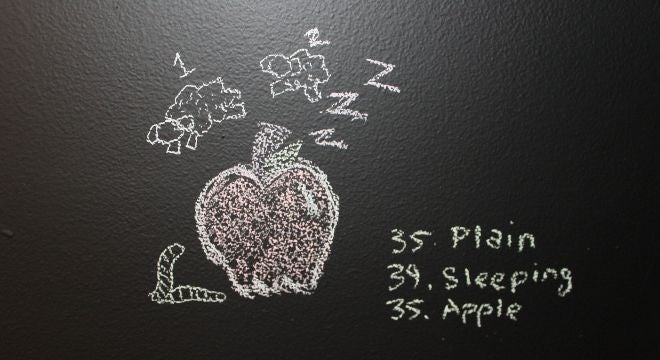 1
2
Z
Z
Z
35. Plain
34. Sleeping
35. Apple